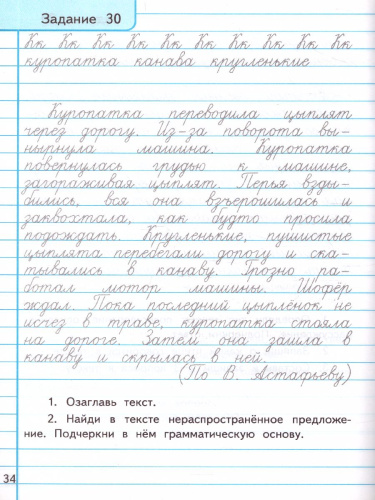 Задание 30
Кк Кк Кк Кк Кк Кк Кк Кк Кк Кк
куропатка канава кругленькие
Куропатка переводила цыплят
через дорогу. Из-за поворота вы-
нырнула машина. Куропатка
повернулась грудью к машине,
загораживая цыплят. Перья взды-
бились, вся она взъерошилась и
заквохтала, как будто просила
подождать. Кругленькие, пушистые
цыплята перебегали дорогу и ска-
тывались в канаву. Грозно ра-
ботал мотор машины. Шофёр
ждал. Пока последний цыплёнок не
исчез в траве, куропатка стояла
на дороге. Затем она зашла в
канаву и скрылась в ней.
(По В. Астафьеву)
1. Озаглавь текст.
2. Найди в тексте нераспространённое предложе-
ние. Подчеркни в нём грамматическую основу.
34